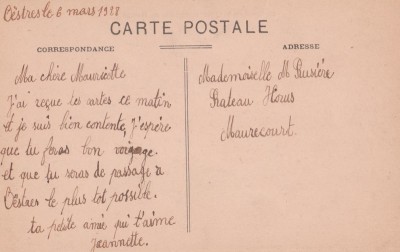 Céstres le 6 mars 1928
CARTE POSTALE
CORRESPONDANCE
ADRESSE
Ma chère Mauricette
J'ai reçue tes cartes ce matin
et je suis bien contente, j'espère
que tu feras bon voyage.
et que tu seras de passage a
Céstres le plus tot possible.
ta petite amie qui t'aime
Jeannette.
Mademoiselle M
Bateau
Maurecourt.